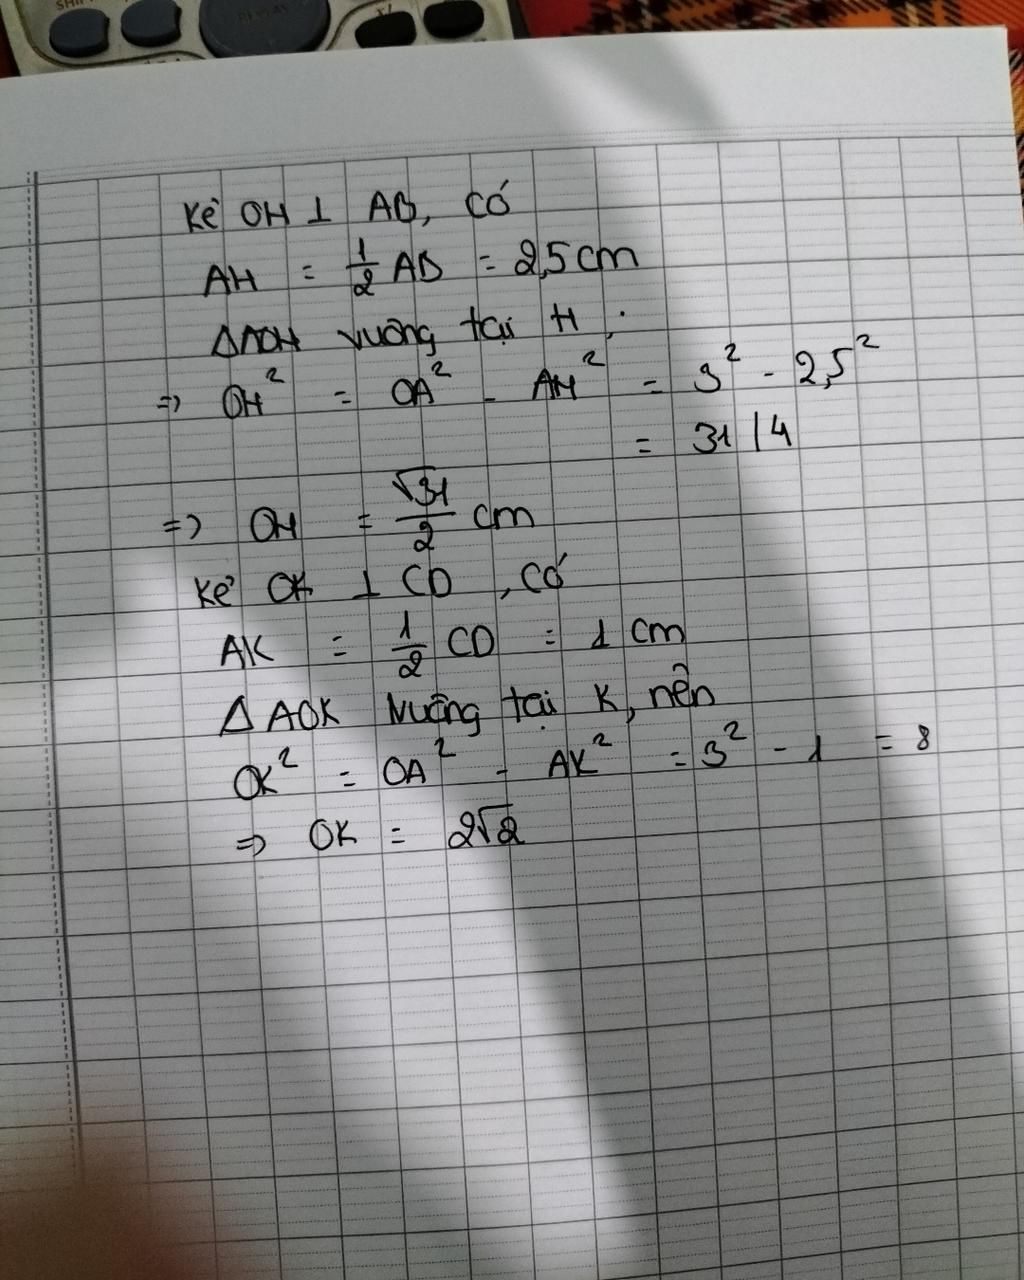 SHIFT
REPLAY
Kẻ OH ⊥ AB, có
AH = 1/2 AB = 2,5 cm
ΔAOH vuông tại H,
=> OH² = OA² - AH² = 3² - 2,5²
= 31/4
=> OH = √31/2 cm
Kẻ OK ⊥ CD, có
AK = 1/2 CD = 1 cm
Δ AOK vuông tại K, nên
OK² = OA² - AK² = 3² - 1 = 8
=> OK = 2√2